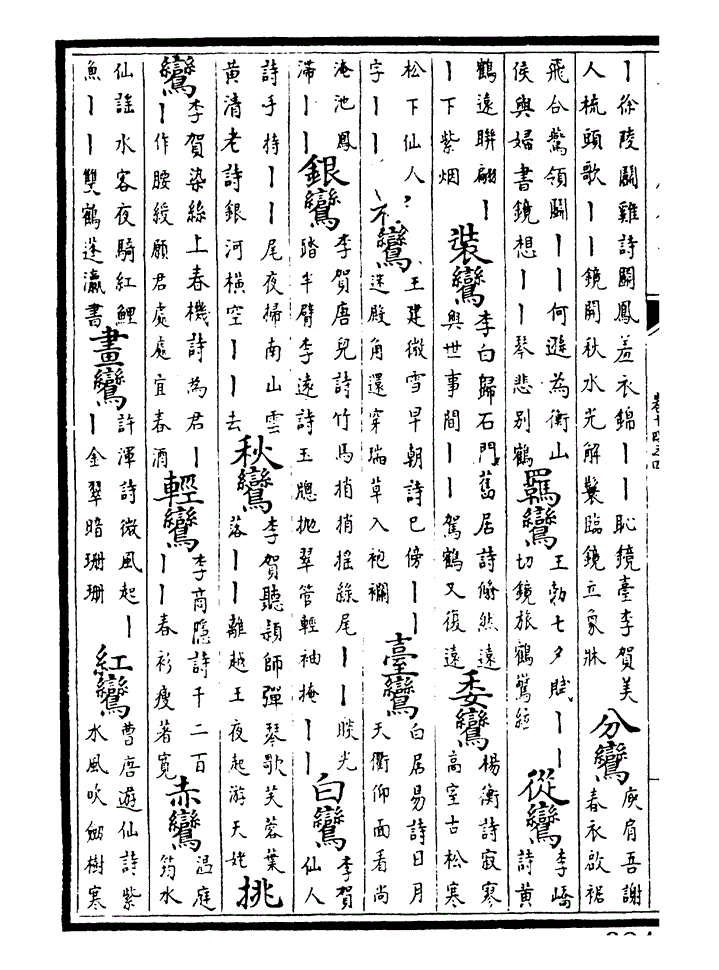 丨徐陵鬬雞詩鬬鳳羞衣錦丨丨恥鏡臺李賀美
人梳頭歌丨丨鏡開秋水光解鬟臨鏡立象牀
分鸞
庾肩吾謝
春衣啟裾
飛合驚領鬬丨丨何遜為衡山
侯與婦書鏡想丨丨琴悲別鶴
羈鸞
王勃七夕賦丨丨
切鏡旅鶴驚絃
從鸞
李嶠
詩黃
鶴遠聯翩丨
丨下紫烟
裝鸞
李白歸石門舊居詩翛然遠
與世事間丨丨駕鶴又復遠
委鸞
楊衡詩寂寒
高室古松寒
松下仙人
字丨丨
鸞
王建微雪早朝詩已傍丨丨
迷殿角還穿瑞草入袍襴
臺鸞
白居易詩日月
天衢仰面看尚
淹池鳳
滯丨丨
銀鸞
李賀唐兒詩竹馬梢梢搖綠尾丨丨睒光
踏半臂李遠詩玉牕拋翠管輕袖掩丨丨
白鸞
李賀
仙人
詩手持丨丨尾夜掃南山雲
黃清老詩銀河橫空丨丨去
秋鸞
李賀聽穎師彈琴歌芙蓉葉
落丨丨離越王夜起游天姥
挑
鸞
李賀染絲上春機詩為君丨
丨作腰綬願君處處宜春酒
輕鸞
李商隱詩千二百
丨丨春衫瘦著寬
赤鸞
温庭
筠水
仙謠水客夜騎紅鯉
魚丨丨雙鶴蓬瀛書
畫鸞
許渾詩微風起丨
丨金翠暗珊珊
紅鸞
曹唐遊仙詩紫
水風吹劒樹寒